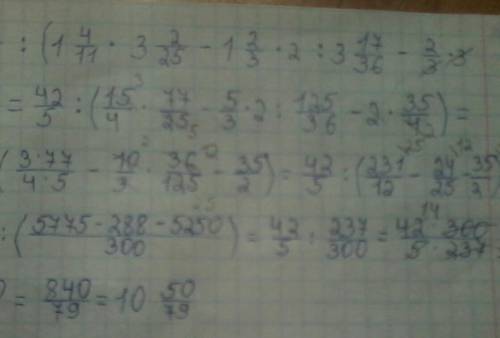 : (1 4/11 · 3 2/25 - 1 2/3 · 2 : 3 17/36 - 2/3 ·
= 42/5 : (15/4 · 77/25 - 5/3 · 2 : 125/36 - 2 · 35/4) =
(3·77/4·5 - 10/3 · 36/125 - 35/2) = 42/5 : (231/12 - 24/25 - 35/2
: (5775 - 288 - 5250/300) = 42/5 : 237/300 = 42/5 · 300/237
= 840/79 = 10 50/79